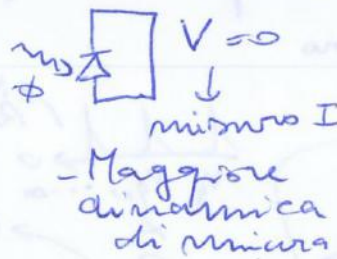 V=0
ϕ
↓
misuro I
- Maggiore
dinamica
di misura